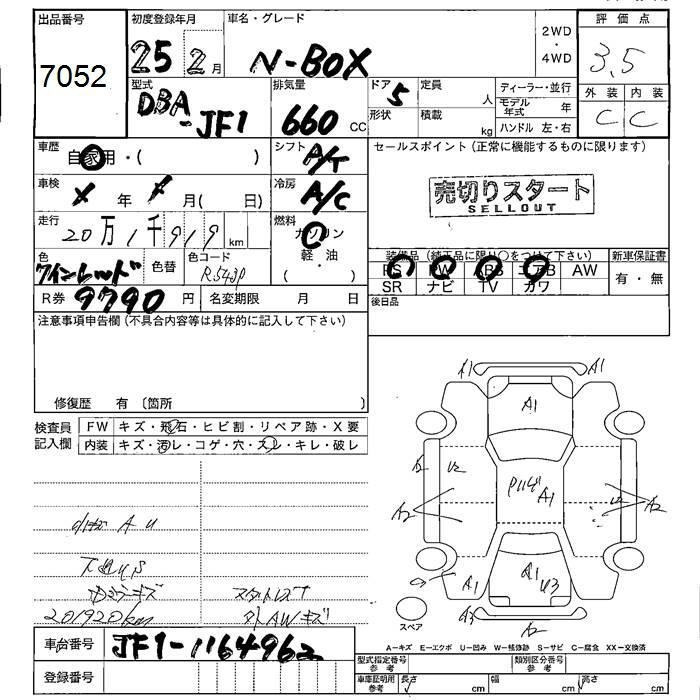 出品番号
7052
初度登録年月
25 2月
車名・グレード
N-BOX
2WD
・
4WD
評価点
3.5
外装 内装
C C
型式
DBA
-JF1
排気量
660 cc
ドア 5
形状
定員 人
積載 kg
ディーラー・並行
モデル年式 年
ハンドル 左・右
車歴
自家用・( )
シフト
A/T
セールスポイント(正常に機能するものに限ります)
売切りスタート
SELLOUT
車検
X 年 月( 日)
冷房
A/C
走行
20万1千919km
燃料
ガソリン
軽・油
( )
色
ワインレッド
色替
色コード
R543P
装備品(純正品に限り○をつけて下さい)
PS PW ABS エアB AW
SR ナビ TV カワ
新車保証書
有・無
R券 9790 円
名変期限 月 日
後日品
注意事項申告欄(不具合内容等は具体的に記入して下さい)
修復歴 有〔箇所 〕
検査員
記入欄
FW キズ・飛石・ヒビ割・リペア跡・X要
内装 キズ・汚レ・コゲ・穴・スレ・キレ・破レ
A1 A1
A1
A2 U2
A2
A1
U2 A2
A1 A1 U3
A3
A2
スペア
A U
キズ
201920km
外AWキズ
車台番号 JF1-1164962
登録番号
A-キズ E-エクボ U-凹み W-補修跡 S-サビ C-腐食 XX-交換済
型式指定番号
参考
類別区分番号
参考
車庫証明用
参考
長さ cm
cm
高さ cm